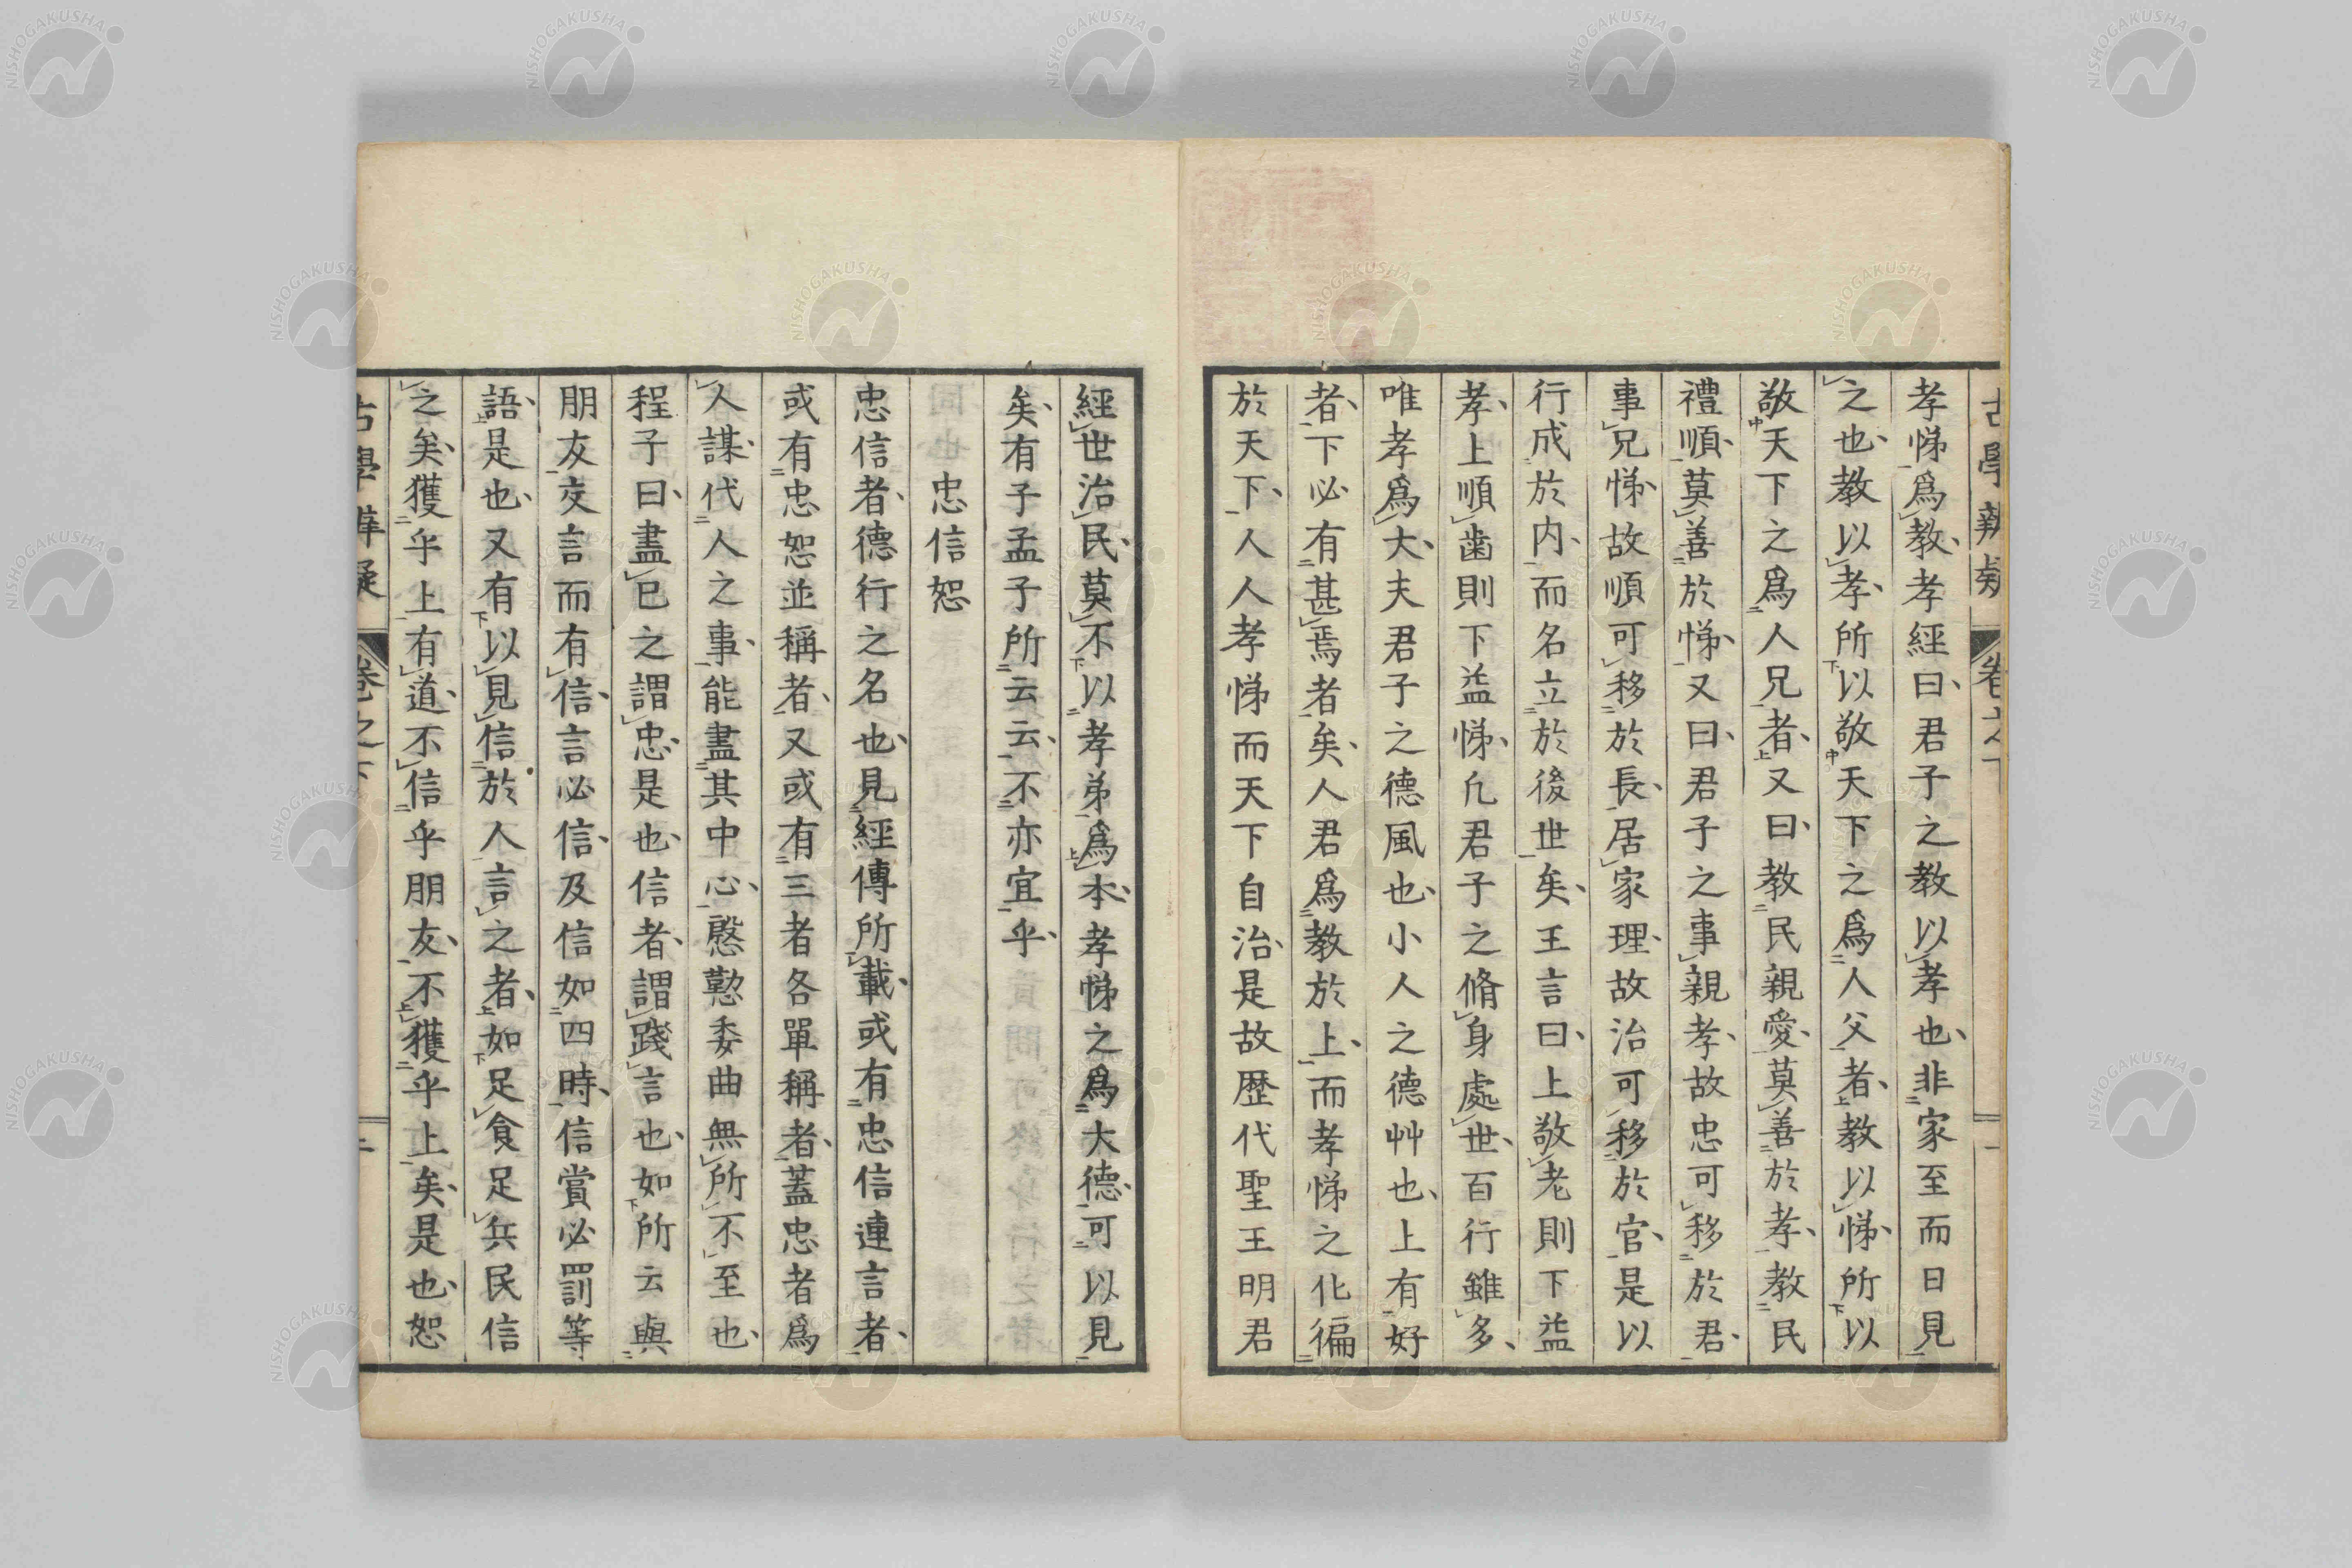 孝悌爲教孝經曰君子之教以孝也非家至而日見
之也教以孝所以敬天下之爲人父者教以悌所以
敬天下之爲人兄者又曰教民親愛莫善於孝教民
禮順莫善於悌又曰君子之事親孝故忠可移於君
事兄悌故順可移於長居家理故治可移於官是以
行成於内而名立於後世矣王言曰上敬老則下益
孝上順齒則下益悌凢君子之脩身處世百行雖多
唯孝爲大夫君子之德風也小人之德艸也上有好
者下必有甚焉者矣人君爲教於上而孝悌之化徧
於天下人人孝悌而天下自治是故歴代聖王明君
經世治民莫不以孝弟爲本孝悌之爲大德可以見
矣有子孟子所云云不亦宜乎
忠信恕
忠信者德行之名也見經傳所載或有忠信連言者
或有忠恕並稱者又或有三者各單稱者蓋忠者爲
人謀代人之事能盡其中心慇懃委曲無所不至也
程子曰盡已之謂忠是也信者謂踐言也如所云與
朋友交言而有信言必信及信如四時信賞必罰等
語是也又有以見信於人言之者如足食足兵民信
之矣獲乎上有道不信乎朋友不獲乎上矣是也恕
古學辨疑 卷之下 二
NISHOGAKUSHA